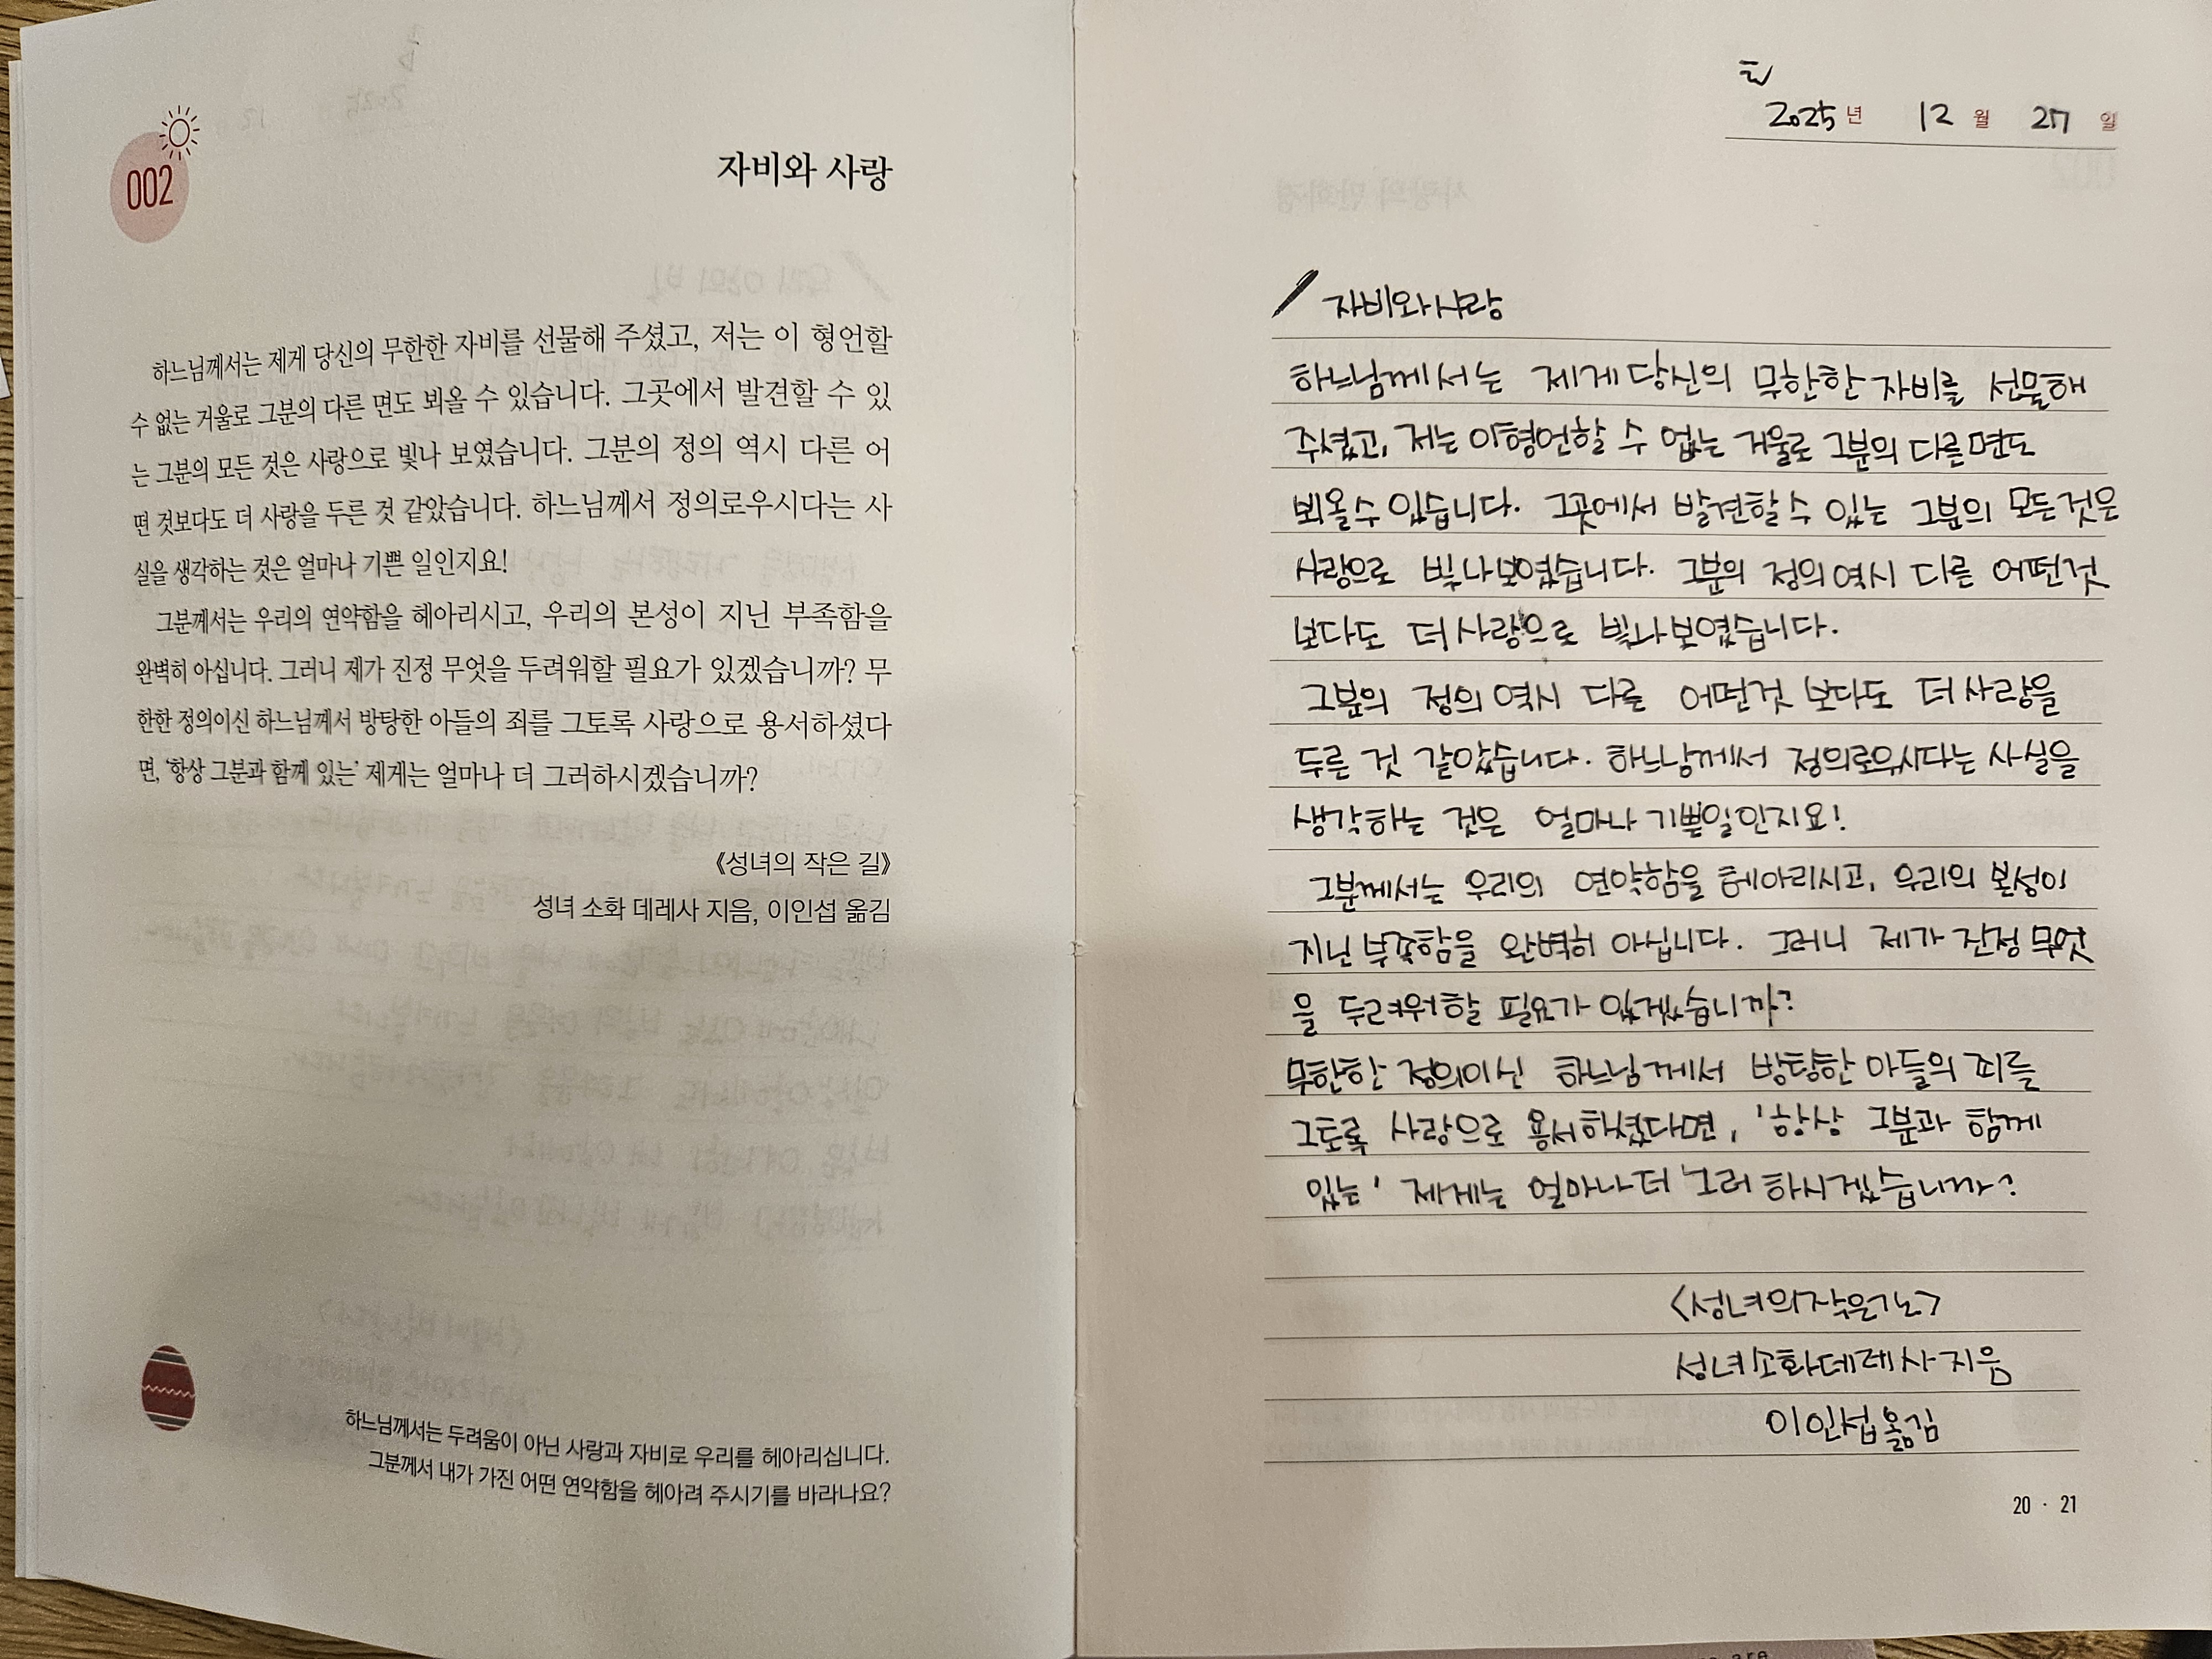 002
자비와 사랑
하느님께서는 제게 당신의 무한한 자비를 선물해 주셨고, 저는 이 형언할
수 없는 거울로 그분의 다른 면도 뵈올 수 있습니다. 그곳에서 발견할 수 있
는 그분의 모든 것은 사랑으로 빛나 보였습니다. 그분의 정의 역시 다른 어
떤 것보다도 더 사랑을 두른 것 같았습니다. 하느님께서 정의로우시다는 사
실을 생각하는 것은 얼마나 기쁜 일인지요!
그분께서는 우리의 연약함을 헤아리시고, 우리의 본성이 지닌 부족함을
완벽히 아십니다. 그러니 제가 진정 무엇을 두려워할 필요가 있겠습니까? 무
한한 정의이신 하느님께서 방탕한 아들의 죄를 그토록 사랑으로 용서하셨다
면, ‘항상 그분과 함께 있는’ 제게는 얼마나 더 그러하시겠습니까?
《성녀의 작은 길》
성녀 소화 데레사 지음, 이인섭 옮김
하느님께서는 두려움이 아닌 사랑과 자비로 우리를 헤아리십니다.
그분께서 내가 가진 어떤 연약함을 헤아려 주시기를 바라나요?
토
2025년 12월 27일
자비와 사랑
하느님께서는 제게 당신의 무한한 자비를 선물해
주셨고, 저는 이 형언할 수 없는 거울로 그분의 다른 면도
뵈올 수 있습니다. 그곳에서 발견할 수 있는 그분의 모든 것은
사랑으로 빛나 보였습니다. 그분의 정의 역시 다른 어떤 것
보다도 더 사랑으로 빛나 보였습니다.
그분의 정의 역시 다른 어떤것 보다도 더 사랑을
두른 것 같았습니다. 하느님께서 정의로우시다는 사실을
생각하는 것은 얼마나 기쁜일인지요!
그분께서는 우리의 연약함을 헤아리시고, 우리의 본성이
지닌 부족함을 완벽히 아십니다. 그러니 제가 진정 무엇
을 두려워할 필요가 있겠습니까?
무한한 정의이신 하느님께서 방탕한 아들의 죄를
그토록 사랑으로 용서하셨다면, '항상 그분과 함께
있는' 제게는 얼마나 더 그러 하시겠습니까?
<성녀의 작은 길>
성녀 소화 데레사 지음
이인섭 옮김
20 · 21